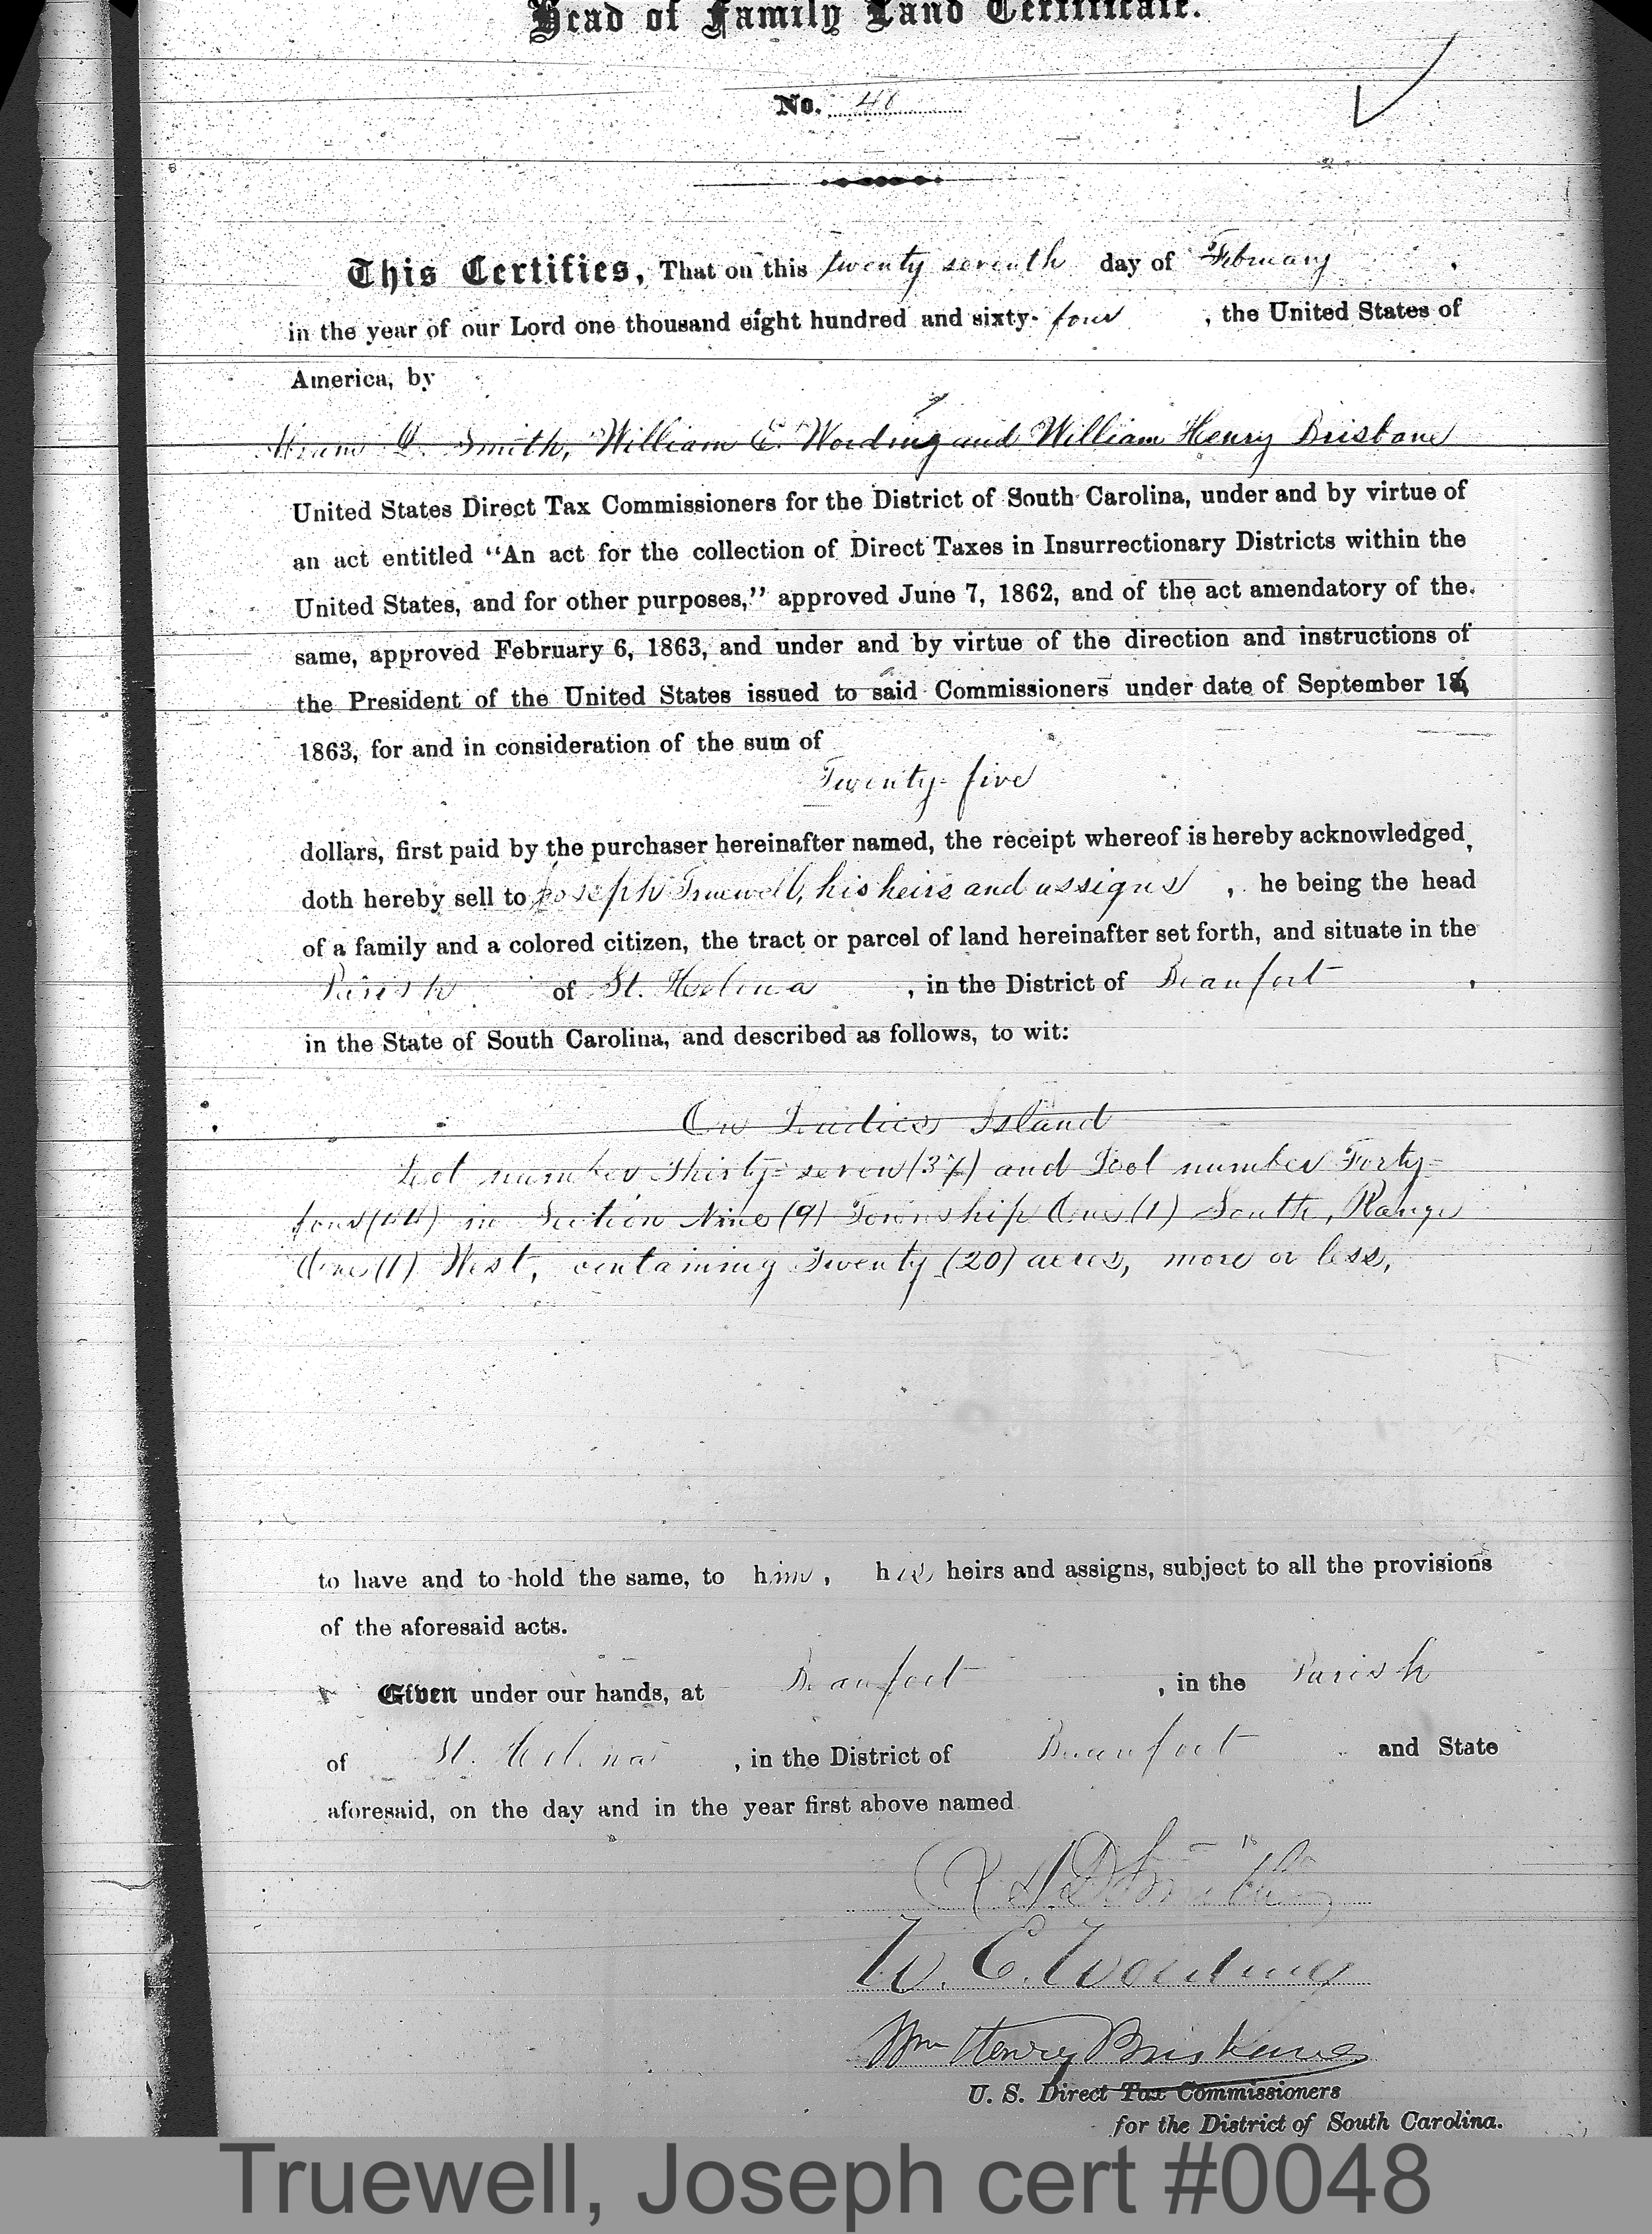 Head of Family Land Certificate.
No. 48
This Certifies, That on this twenty seventh day of February ,
in the year of our Lord one thousand eight hundred and sixty- four , the United States of
America, by
Abram D. Smith, William E. Wording and William Henry Brisbane
United States Direct Tax Commissioners for the District of South Carolina, under and by virtue of
an act entitled "An act for the collection of Direct Taxes in Insurrectionary Districts within the
United States, and for other purposes," approved June 7, 1862, and of the act amendatory of the
same, approved February 6, 1863, and under and by virtue of the direction and instructions of
the President of the United States issued to said Commissioners under date of September 16,
1863, for and in consideration of the sum of
Twenty-five
dollars, first paid by the purchaser hereinafter named, the receipt whereof is hereby acknowledged,
doth hereby sell to Joseph Truewell, his heirs and assigns , he being the head
of a family and a colored citizen, the tract or parcel of land hereinafter set forth, and situate in the
Parish of St. Helena , in the District of Beaufort ,
in the State of South Carolina, and described as follows, to wit:
On Ladies Island
Lot number Thirty-seven (37) and Lot number Forty-
four (44) in Section Nine (9) Township One (1) South, Range
One (1) West, containing Twenty (20) acres, more or less,
to have and to hold the same, to him, his heirs and assigns, subject to all the provisions
of the aforesaid acts.
Given under our hands, at Beaufort , in the Parish
of St. Helena , in the District of Beaufort and State
aforesaid, on the day and in the year first above named
A. D. Smith
W. E. Wording
Wm Henry Brisbane
U. S. Direct Tax Commissioners
for the District of South Carolina.
Truewell, Joseph cert #0048